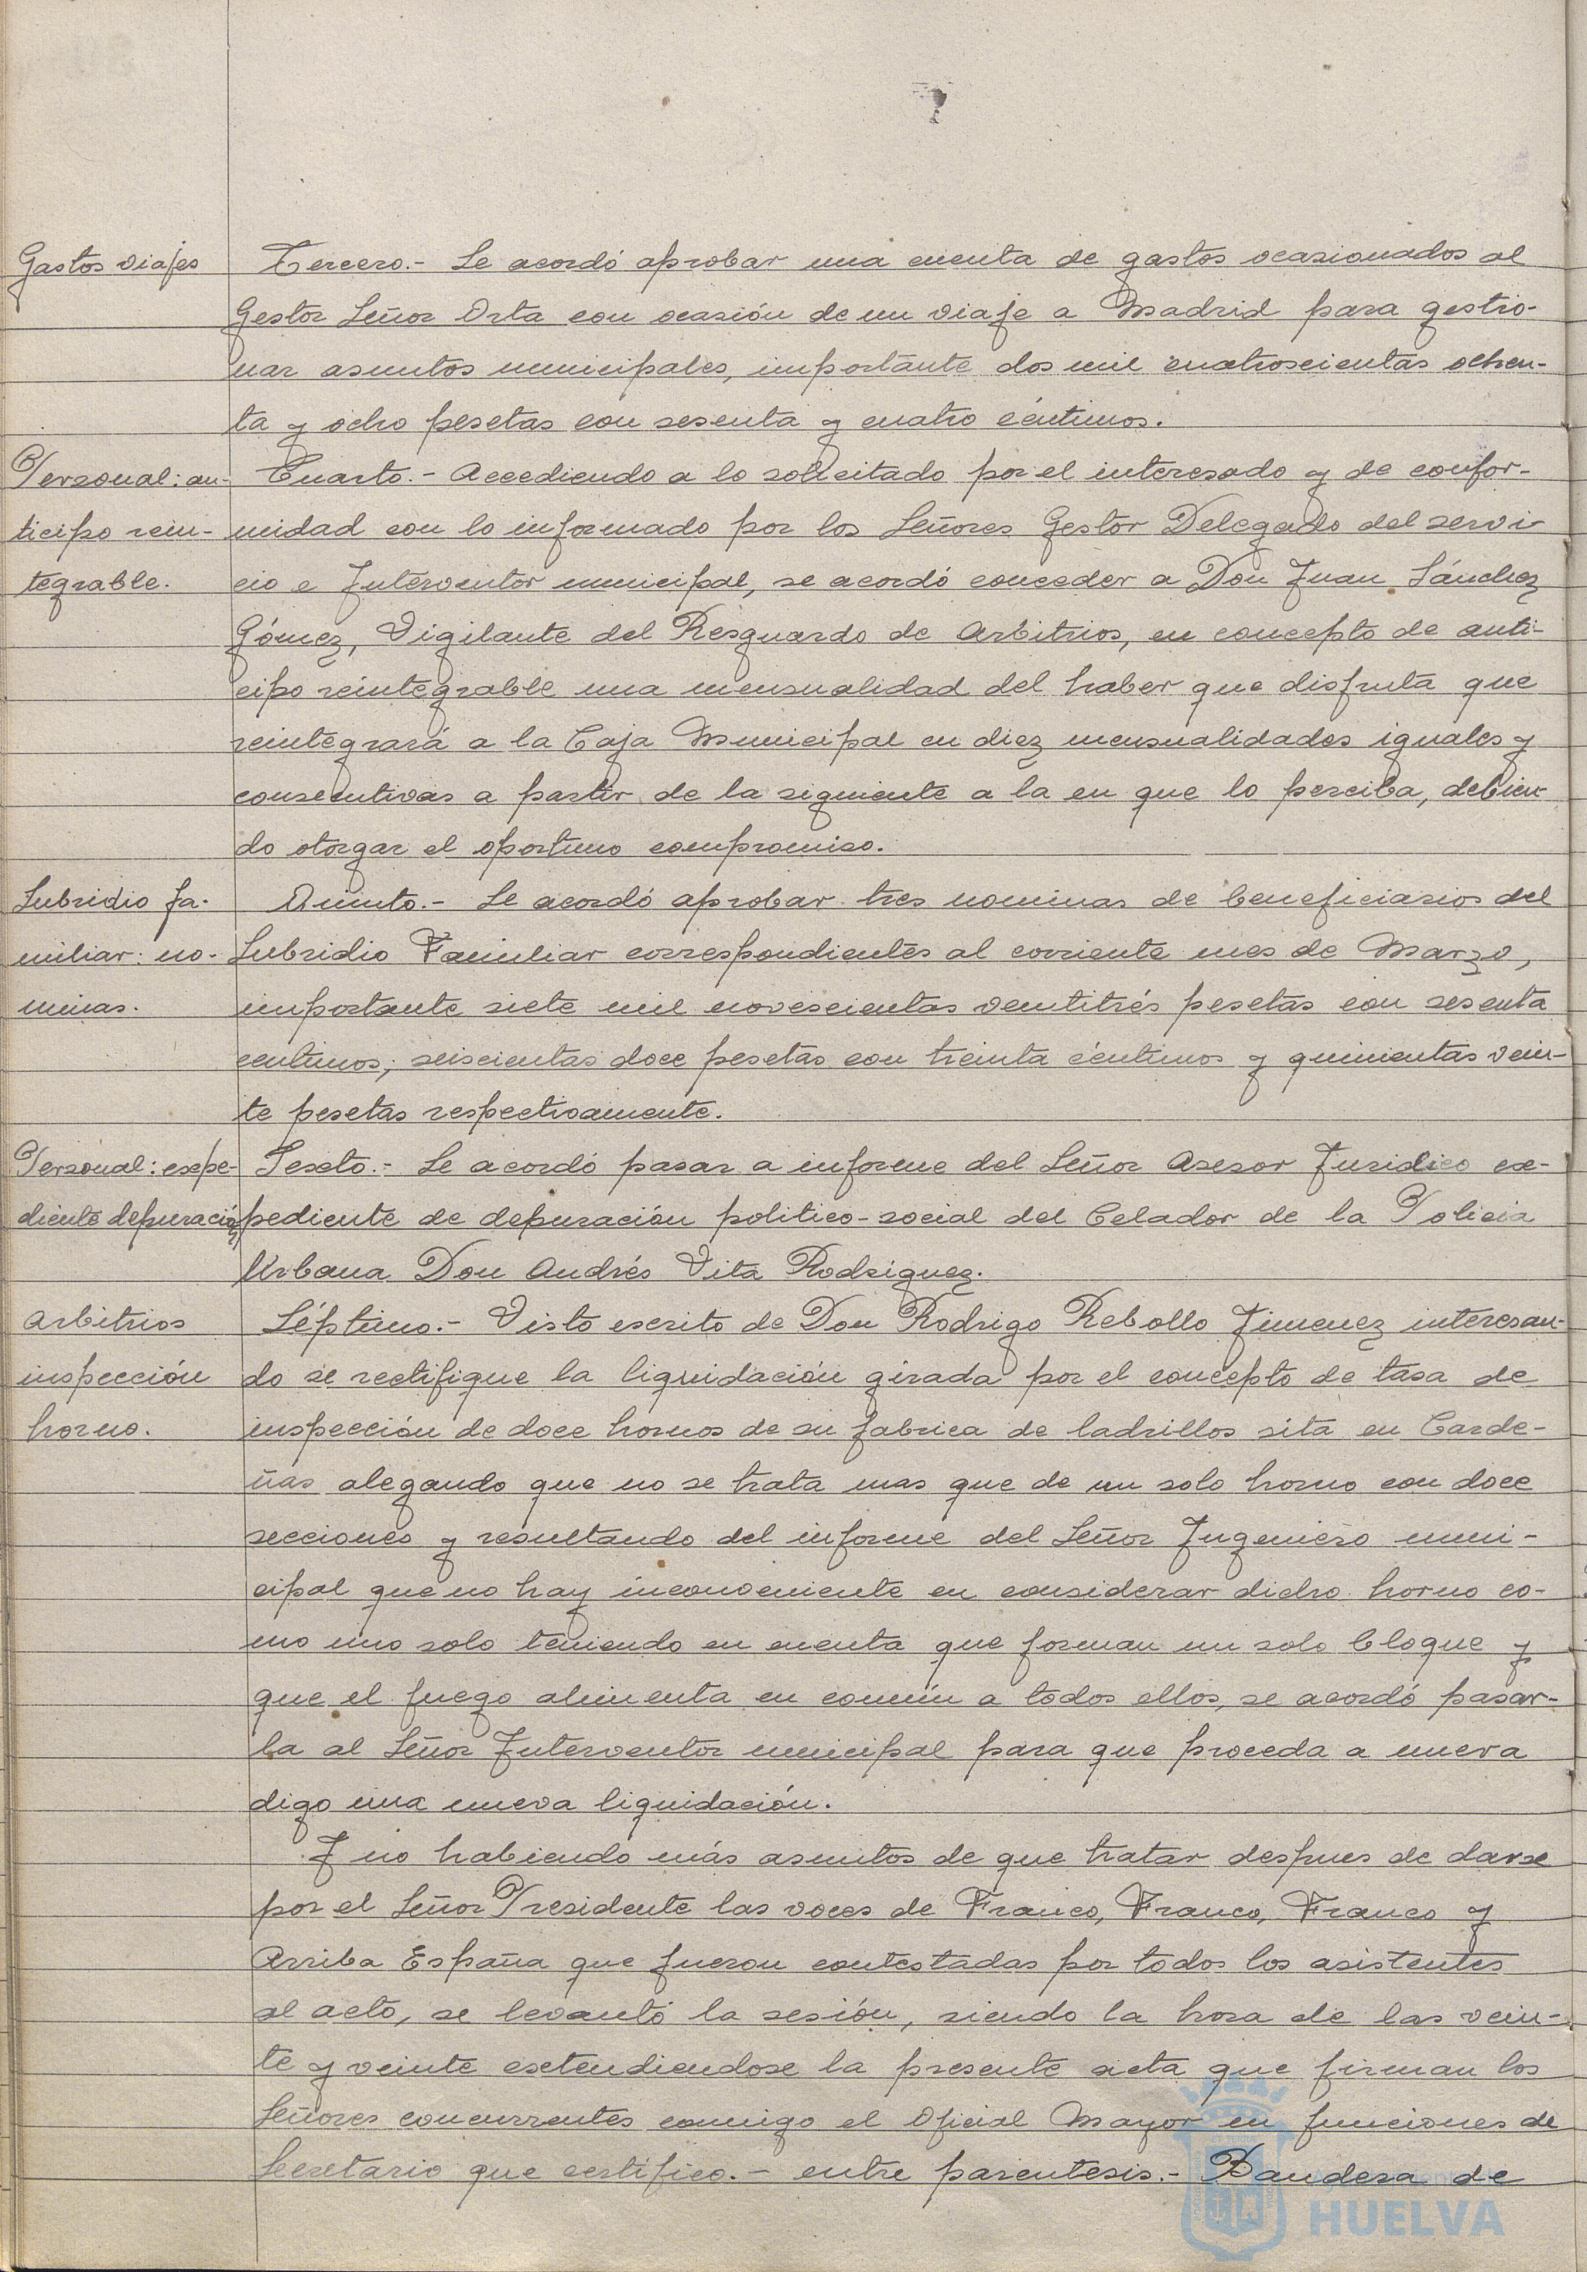 Gastos viajes
Tercero.- Se acordó aprobar una cuenta de gastos ocasionados al
Gestor Señor Orta con ocasión de un viaje a Madrid para gestio-
nar asuntos municipales, importante dos mil cuatroscientas ochen-
ta y ocho pesetas con sesenta y cuatro céntimos.
Personal: an-
ticipo rein-
tegrable.
Cuarto.- Accediendo a lo solicitado por el interesado y de confor-
midad con lo informado por los Señores Gestor Delegado del servi-
cio e Interventor municipal, se acordó conceder a Don Juan Sánchez
Gómez, Vigilante del Resguardo de Arbitrios, en concepto de anti-
cipo reintegrable una mensualidad del haber que disfruta que
reintegrará a la Caja Municipal en diez mensualidades iguales y
consecutivas a partir de la siguiente a la en que lo perciba, debien-
do otorgar el oportuno compromiso.
Subsidio fa-
miliar: no-
minas.
Quinto.- Se acordó aprobar tres nominas de beneficiarios del
Subsidio Familiar correspondientes al corriente mes de Marzo,
importante siete mil novescientas ventitrés pesetas con sesenta
centimos; seiscientas doce pesetas con treinta céntimos y quinientas vein-
te pesetas respectivamente.
Personal: expe-
diente depuración
Sexto.- Se acordó pasar a informe del Señor Asesor Juridico ex-
pediente de depuración politico-social del Celador de la Policia
Urbana Don Andrés Vita Rodriguez.
Arbitrios
inspección
horno.
Séptimo.- Visto escrito de Don Rodrigo Rebollo Jimenez interesan-
do se rectifique la liquidación girada por el concepto de tasa de
inspección de doce hornos de su fabrica de ladrillos sita en Carde-
ñas alegando que no se trata mas que de un solo horno con doce
secciones y resultando del informe del Señor Ingeniero muni-
cipal que no hay inconveniente en considerar dicho horno co-
mo uno solo teniendo en cuenta que forman un solo bloque y
que el fuego alimenta en común a todos ellos, se acordó pasar-
la al Señor Interventor municipal para que proceda a nueva
digo una nueva liquidación.
Y no habiendo más asuntos de que tratar despues de darse
por el Señor Presidente las voces de Franco, Franco, Franco y
Arriba España que fueron contestadas por todos los asistentes
al acto, se levantó la sesión, siendo la hora de las vein-
te y veinte extendiendose la presente acta que firman los
Señores concurrentes conmigo el Oficial Mayor en funciones de
Secretario que certifico.- entre parentesis.- Bandera de
HUELVA